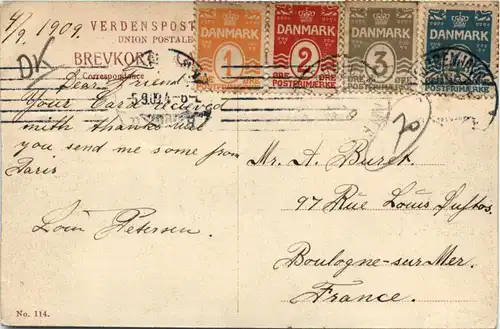 4/9. 1909.
VERDENSPOST
UNION POSTALE
BREVKORT
Correspondance
DK
DANMARK
1
POSTFRIMÆRKE
DANMARK
2
ØRE ØRE
POSTFRIMÆRKE
DANMARK
3
ØRE ØRE
POSTFRIMÆRKE
DANMARK
POSTFRIMÆRKE
Dear Friend!
Your Card received
with thanks will
you send me some from
Paris
Petersen.
70
Mr. A. Buret.
97 Rue Louis
Boulogne-sur-Mer.
France.
No. 114.